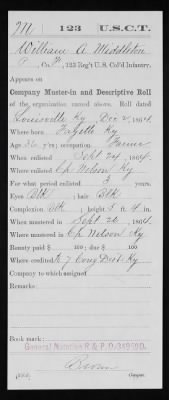 M 123 U.S.C.T.
William A. Middleton
P, Co. F, 123 Reg't U.S. Col'd Infantry.
Appears on
Company Muster-in and Descriptive Roll
of the organization named above. Roll dated
Louisville Ky, Dec 2, 1864.
Where born Fayette Ky
Age 36 y'rs; occupation Farmer
When enlisted Sept 24, 1864.
Where enlisted Cp Nelson Ky
For what period enlisted 3 years.
Eyes Blk; hair Blk
Complexion Blk; height 5 ft. 4 in.
When mustered in Sept 26, 1864.
Where mustered in Cp Nelson Ky
Bounty paid $ 100; due $ 100
Where credited 7 Cong Dist Ky
Company to which assigned
Remarks:
Book mark:
General Notation R & P O
Copyist.